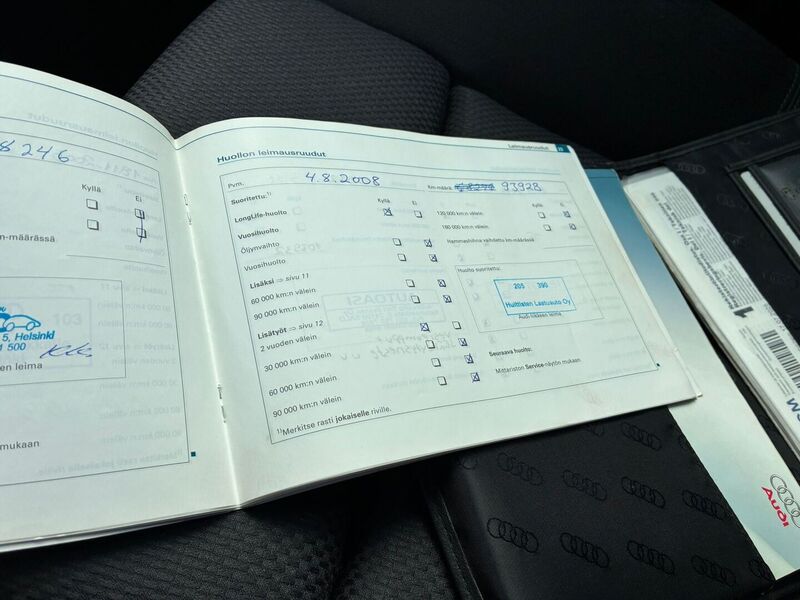 8246
Kyllä
Ei
km-määrässä
5, Helsinki
1 500
en leima
mukaan
Huollon leimausruudut
Leimausruudut
Pvm.
4.8.2008
Km-määrä
93928
Suoritettu:¹⁾
Kyllä
Ei
LongLife-huolto
Vuosihuolto
Öljynvaihto
Vuosihuolto
Lisäksi ⇒ sivu 11
60 000 km:n välein
90 000 km:n välein
Lisätyöt ⇒ sivu 12
2 vuoden välein
30 000 km:n välein
60 000 km:n välein
90 000 km:n välein
¹⁾Merkitse rasti jokaiselle riville.
120 000 km:n välein
180 000 km:n välein
Hammashihna vaihdettu km-määrässä
Huolto suoritettu:
205 390
Huittisten Laatuauto Oy
Audi-liikkeen leima
Seuraava huolto:
Mittariston Service-näytön mukaan
Audi